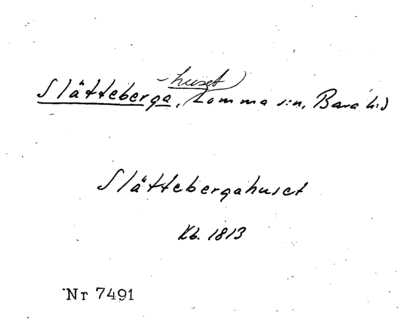 -huset)
Slätteberga, Lomma sn, Bara hd
Slättebergahuset
Kb. 1813
Nr 7491